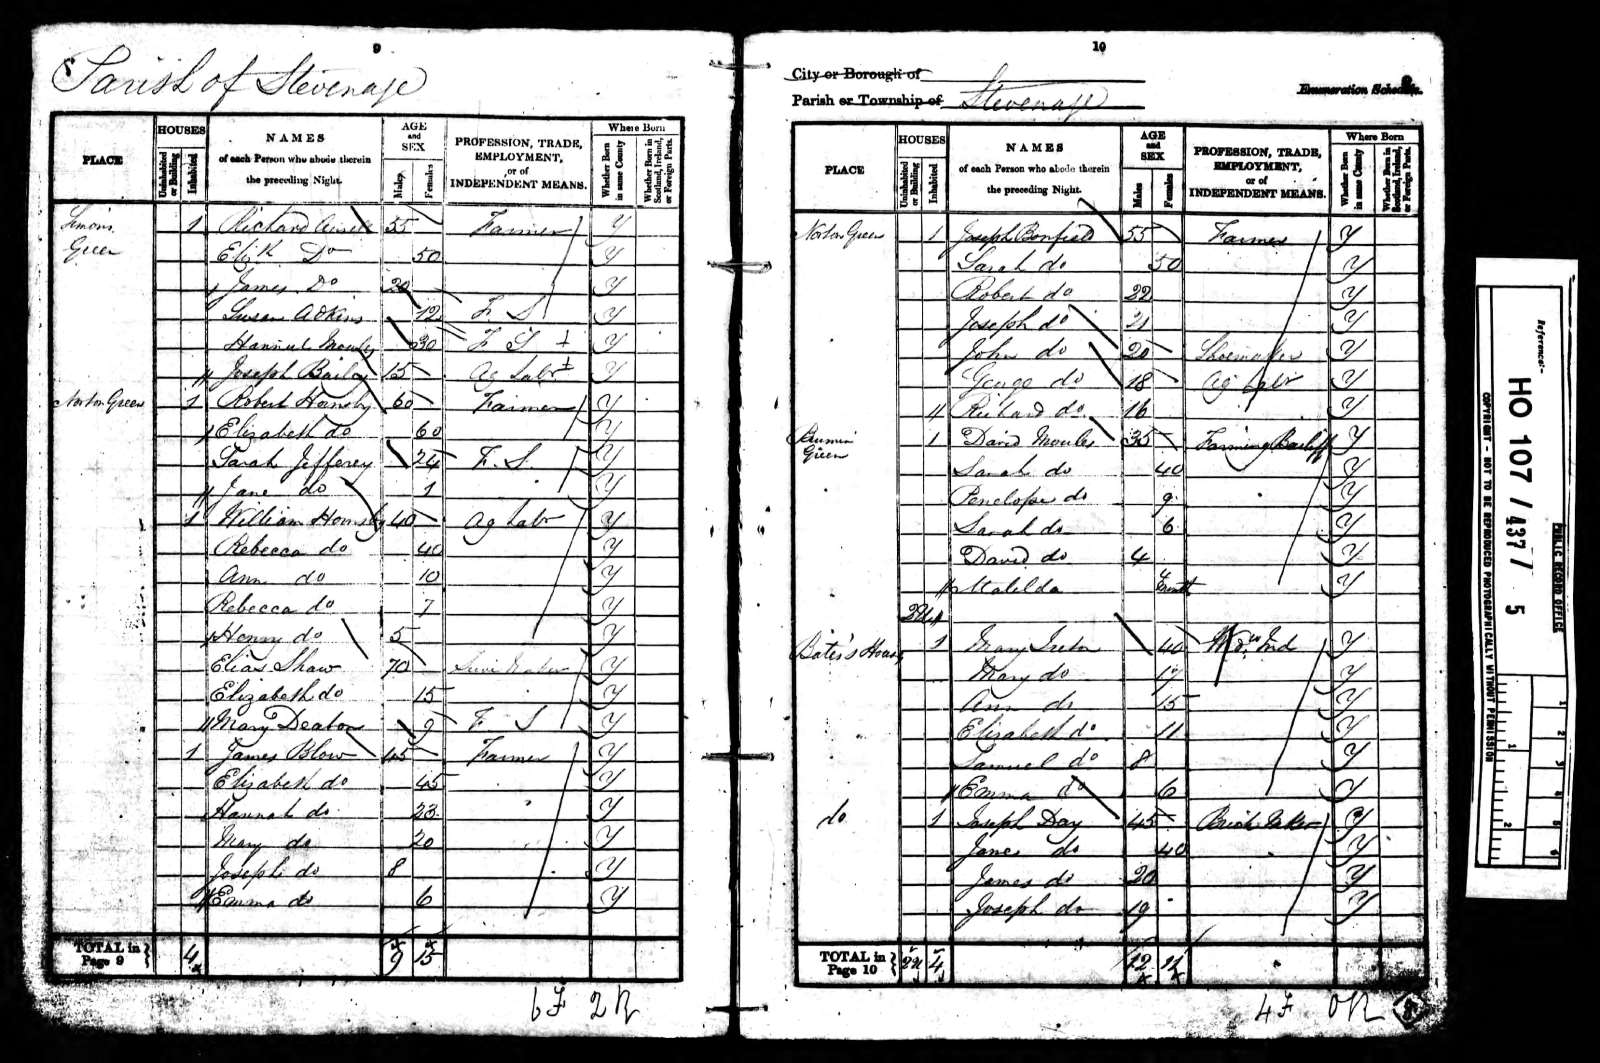 9
Parish of Stevenage
PLACE
HOUSES
Uninhabited or Building
Inhabited
NAMES
of each Person who abode therein
the preceding Night.
AGE
and
SEX
Males
Females
PROFESSION, TRADE,
EMPLOYMENT,
or of
INDEPENDENT MEANS.
Where Born
Whether Born in same County
Whether Born in Scotland, Ireland, or Foreign Parts.
Simons 1 Richard 55 Farmer Y
Green Eliz.h Do 50 Y
James Do 20 Y
Susan Adkins 12 F S Y
Hannah 30 F S Y
Joseph Bailey 15 Ag Labr Y
Norton Green 1 Robert Hornsby 60 Farmer Y
Elizabeth do 60 Y
Sarah Jefferey 24 F. S. Y
Jane do 1 Y
1 William Hornsby 40 Ag Labr Y
Rebecca do 40 Y
Ann do 10 Y
Rebecca do 7 Y
Henry do 5 Y
Elias Shaw 70 Y
Elizabeth do 15 Y
Mary Deaton 9 F S Y
1 James Blow 45 Farmer Y
Elizabeth do 45 Y
Hannah do 23 Y
Mary do 20 Y
Joseph do 8 Y
Emma do 6 Y
TOTAL in
Page 9
4 9 15
6F 2R
10
City or Borough of
Parish or Township of Stevenage
Enumeration Schedule.
PLACE
HOUSES
Uninhabited or Building
Inhabited
NAMES
of each Person who abode therein
the preceding Night.
AGE
and
SEX
Males
Females
PROFESSION, TRADE,
EMPLOYMENT,
or of
INDEPENDENT MEANS.
Where Born
Whether Born in same County
Whether Born in Scotland, Ireland, or Foreign Parts.
Norton Green 1 Joseph Bonfield 55 Farmer Y
Sarah do 50 Y
Robert do 22 Y
Joseph do 21 Y
John do 20 Shoemaker Y
George do 18 Ag Labr Y
Richard do 16 Y
Green 1 David Moules 35 Farming Bailiff Y
Sarah do 40 Y
Penelope do 9 Y
Sarah do 6 Y
David do 4 Y
Matilda 4 Y
Bates's House 1 Mary Ireton 40 Ind Y
Mary do 17 Y
Ann do 15 Y
Elizabeth do 11 Y
Samuel do 8 Y
Emma do 6 Y
do 1 Joseph Day 45 Brick Maker Y
Jane do 40 Y
James do 20 Y
Joseph do 19 Y
TOTAL in
Page 10
4 12 11
4F 0R
Reference:-
HO 107 / 437 5
PUBLIC RECORD OFFICE
COPYRIGHT - NOT TO BE REPRODUCED PHOTOGRAPHICALLY WITHOUT PERMISSION
1
2
3
4
5
6
1
2